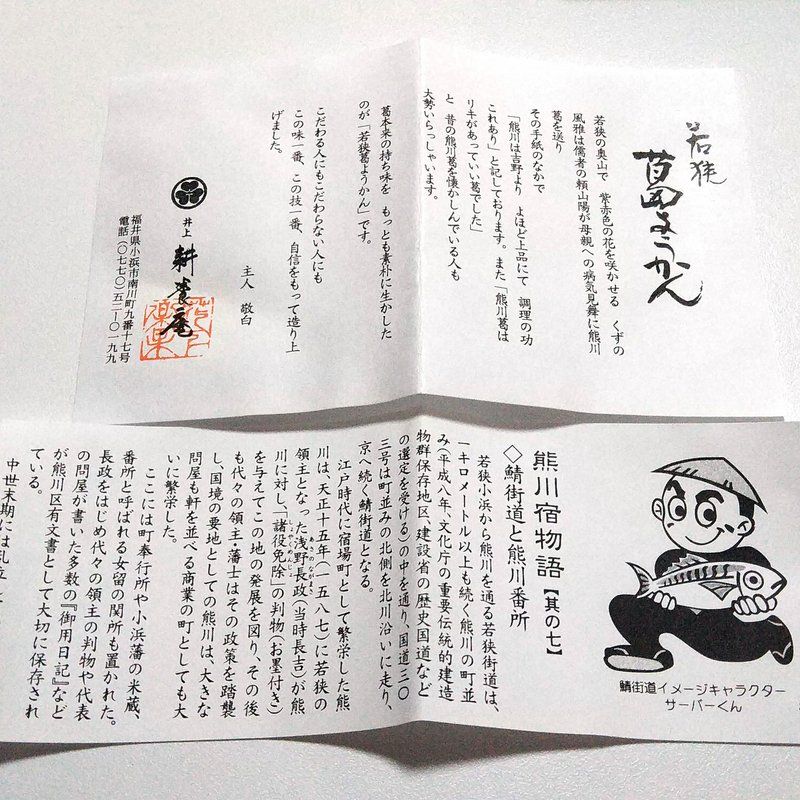 若狭
葛ようかん
若狭の奥山で　紫赤色の花を咲かせる　くずの
風雅は儒者の頼山陽が母親への病気見舞に熊川
葛を送り
その手紙のなかで
「熊川は吉野より　よほど上品にて　調理の功
これあり」と記しております。また「熊川葛は
リキがあっていい葛でした」
と　昔の熊川葛を懐かしんでいる人も
大勢いらっしゃいます。
葛本来の持ち味を　もっとも素朴に生かした
のが「若狭葛ようかん」です。
こだわる人にもこだわらない人にも
この味一番、この技一番、自信をもって造り上
げました。
主人　敬白
井上　耕養庵
福井県小浜市南川町九番十七号
電話（〇七七〇）五二ー〇一九九
鯖街道イメージキャラクター
サーバーくん
熊川宿物語【其の七】
◇鯖街道と熊川番所
若狭小浜から熊川を通る若狭街道は、
一キロメートル以上も続く熊川の町並
み（平成八年、文化庁の重要伝統的建造
物群保存地区、建設省の歴史国道など
の選定を受ける）の中を通り、国道三〇
三号は町並みの北側を北川沿いに走り、
京へ続く鯖街道となる。
江戸時代に宿場町として繁栄した熊
川は、天正十五年（一五八七）に若狭の
領主となった浅野長政（当時長吉）が熊
川に対し、「諸役免除」の判物（お墨付き）
を与えてこの地の発展を図り、その後
も代々の領主・藩士はその政策を踏襲
し、国境の要地としての熊川は、大きな
問屋も軒を並べる商業の町としても大
いに繁栄した。
ここには町奉行所や小浜藩の米蔵、
番所と呼ばれる女留の関所も置かれた。
長政をはじめ代々の領主の判物や代表
の問屋が書いた多数の『御用日記』など
が熊川区有文書として大切に保存され
ている。
中世末期には